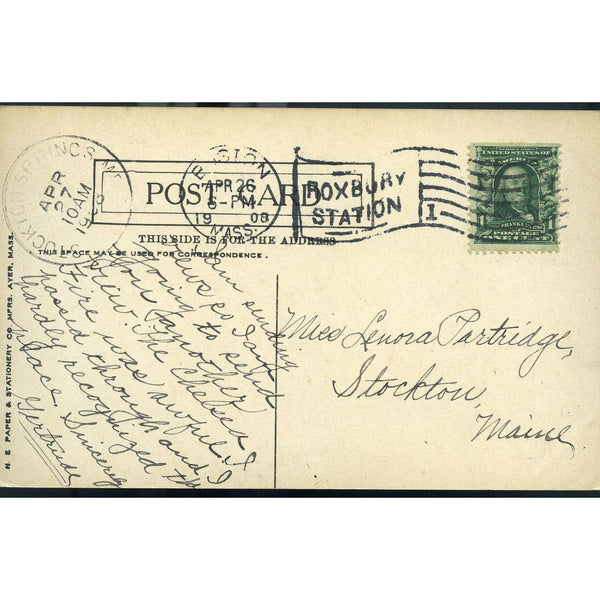 STOCKTON SPRINGS, ME.
APR
27
10 AM
1908
BOSTON
APR 26
5-PM
19 08
MASS.
ROXBURY
STATION
1
UNITED STATES OF
AMERICA
FRANKLIN
POSTAGE
ONE CENT
POST CARD
THIS SIDE IS FOR THE ADDRESS
THIS SPACE MAY BE USED FOR CORRESPONDENCE.
N. E. PAPER & STATIONERY CO. MFRS. AYER, MASS.
I am sending
views so I am
going to send
you another
view. The Chelsea
fire was awful. I
passed through and I
hardly recognized the
place. Sincerely
Gertrude
Miss Lenora Partridge,
Stockton
Maine.